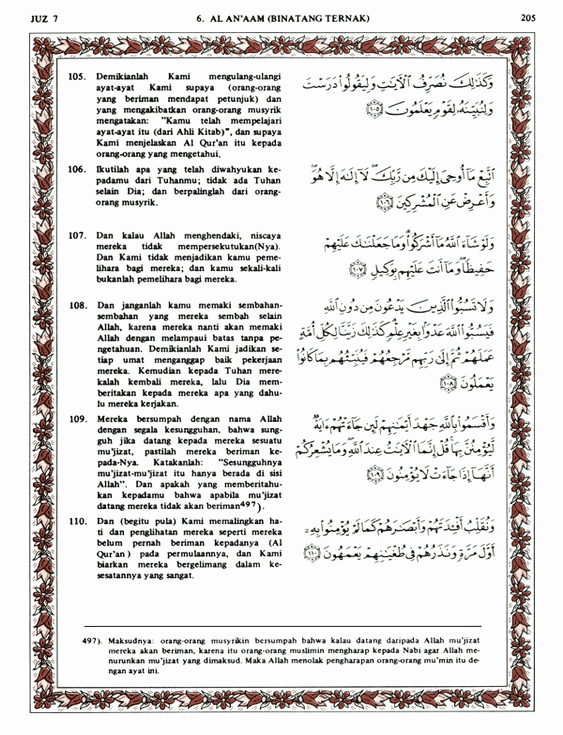 JUZ 7
6. AL AN'AAM (BINATANG TERNAK)
205
105. Demikianlah Kami mengulang-ulangi
ayat-ayat Kami supaya (orang-orang
yang beriman mendapat petunjuk) dan
yang mengakibatkan orang-orang musyrik
mengatakan: "Kamu telah mempelajari
ayat-ayat itu (dari Ahli Kitab)", dan supaya
Kami menjelaskan Al Qur'an itu kepada
orang-orang yang mengetahui,
وَكَذَٰلِكَ نُصَرِّفُ الْآيَاتِ وَلِيَقُولُوا دَرَسْتَ
وَلِنُبَيِّنَهُ لِقَوْمٍ يَعْلَمُونَ ١٠٥
106. Ikutilah apa yang telah diwahyukan ke-
padamu dari Tuhanmu; tidak ada Tuhan
selain Dia; dan berpalinglah dari orang-
orang musyrik.
اتَّبِعْ مَا أُوحِيَ إِلَيْكَ مِن رَّبِّكَ لَا إِلَٰهَ إِلَّا هُوَ
وَأَعْرِضْ عَنِ الْمُشْرِكِينَ ١٠٦
107. Dan kalau Allah menghendaki, niscaya
mereka tidak mempersekutukan(Nya).
Dan Kami tidak menjadikan kamu peme-
lihara bagi mereka; dan kamu sekali-kali
bukanlah pemelihara bagi mereka.
وَلَوْ شَاءَ اللَّهُ مَا أَشْرَكُوا وَمَا جَعَلْنَاكَ عَلَيْهِمْ
حَفِيظًا وَمَا أَنتَ عَلَيْهِم بِوَكِيلٍ ١٠٧
108. Dan janganlah kamu memaki sembahan-
sembahan yang mereka sembah selain
Allah, karena mereka nanti akan memaki
Allah dengan melampaui batas tanpa pe-
ngetahuan. Demikianlah Kami jadikan se-
tiap umat menganggap baik pekerjaan
mereka. Kemudian kepada Tuhan mere-
kalah kembali mereka, lalu Dia mem-
beritakan kepada mereka apa yang dahu-
lu mereka kerjakan.
وَلَا تَسُبُّوا الَّذِينَ يَدْعُونَ مِن دُونِ اللَّهِ
فَيَسُبُّوا اللَّهَ عَدْوًا بِغَيْرِ عِلْمٍ كَذَٰلِكَ زَيَّنَّا لِكُلِّ أُمَّةٍ
عَمَلَهُمْ ثُمَّ إِلَىٰ رَبِّهِم مَّرْجِعُهُمْ فَيُنَبِّئُهُم بِمَا كَانُوا
يَعْمَلُونَ ١٠٨
109. Mereka bersumpah dengan nama Allah
dengan segala kesungguhan, bahwa sung-
guh jika datang kepada mereka sesuatu
mu'jizat, pastilah mereka beriman ke-
pada-Nya. Katakanlah: "Sesungguhnya
mu'jizat-mu'jizat itu hanya berada di sisi
Allah". Dan apakah yang memberitahu-
kan kepadamu bahwa apabila mu'jizat
datang mereka tidak akan beriman497).
وَأَقْسَمُوا بِاللَّهِ جَهْدَ أَيْمَانِهِمْ لَئِن جَاءَتْهُمْ آيَةٌ
لَّيُؤْمِنُنَّ بِهَا قُلْ إِنَّمَا الْآيَاتُ عِندَ اللَّهِ وَمَا يُشْعِرُكُمْ
أَنَّهَا إِذَا جَاءَتْ لَا يُؤْمِنُونَ ١٠٩
110. Dan (begitu pula) Kami memalingkan ha-
ti dan penglihatan mereka seperti mereka
belum pernah beriman kepadanya (Al
Qur'an) pada permulaannya, dan Kami
biarkan mereka bergelimang dalam ke-
sesatannya yang sangat.
وَنُقَلِّبُ أَفْئِدَتَهُمْ وَأَبْصَارَهُمْ كَمَا لَمْ يُؤْمِنُوا بِهِ
أَوَّلَ مَرَّةٍ وَنَذَرُهُمْ فِي طُغْيَانِهِمْ يَعْمَهُونَ ١١٠
497). Maksudnya: orang-orang musyrikin bersumpah bahwa kalau datang daripada Allah mu'jizat
mereka akan beriman, karena itu orang-orang muslimin mengharap kepada Nabi agar Allah me-
nurunkan mu'jizat yang dimaksud. Maka Allah menolak pengharapan orang-orang mu'min itu de-
ngan ayat ini.